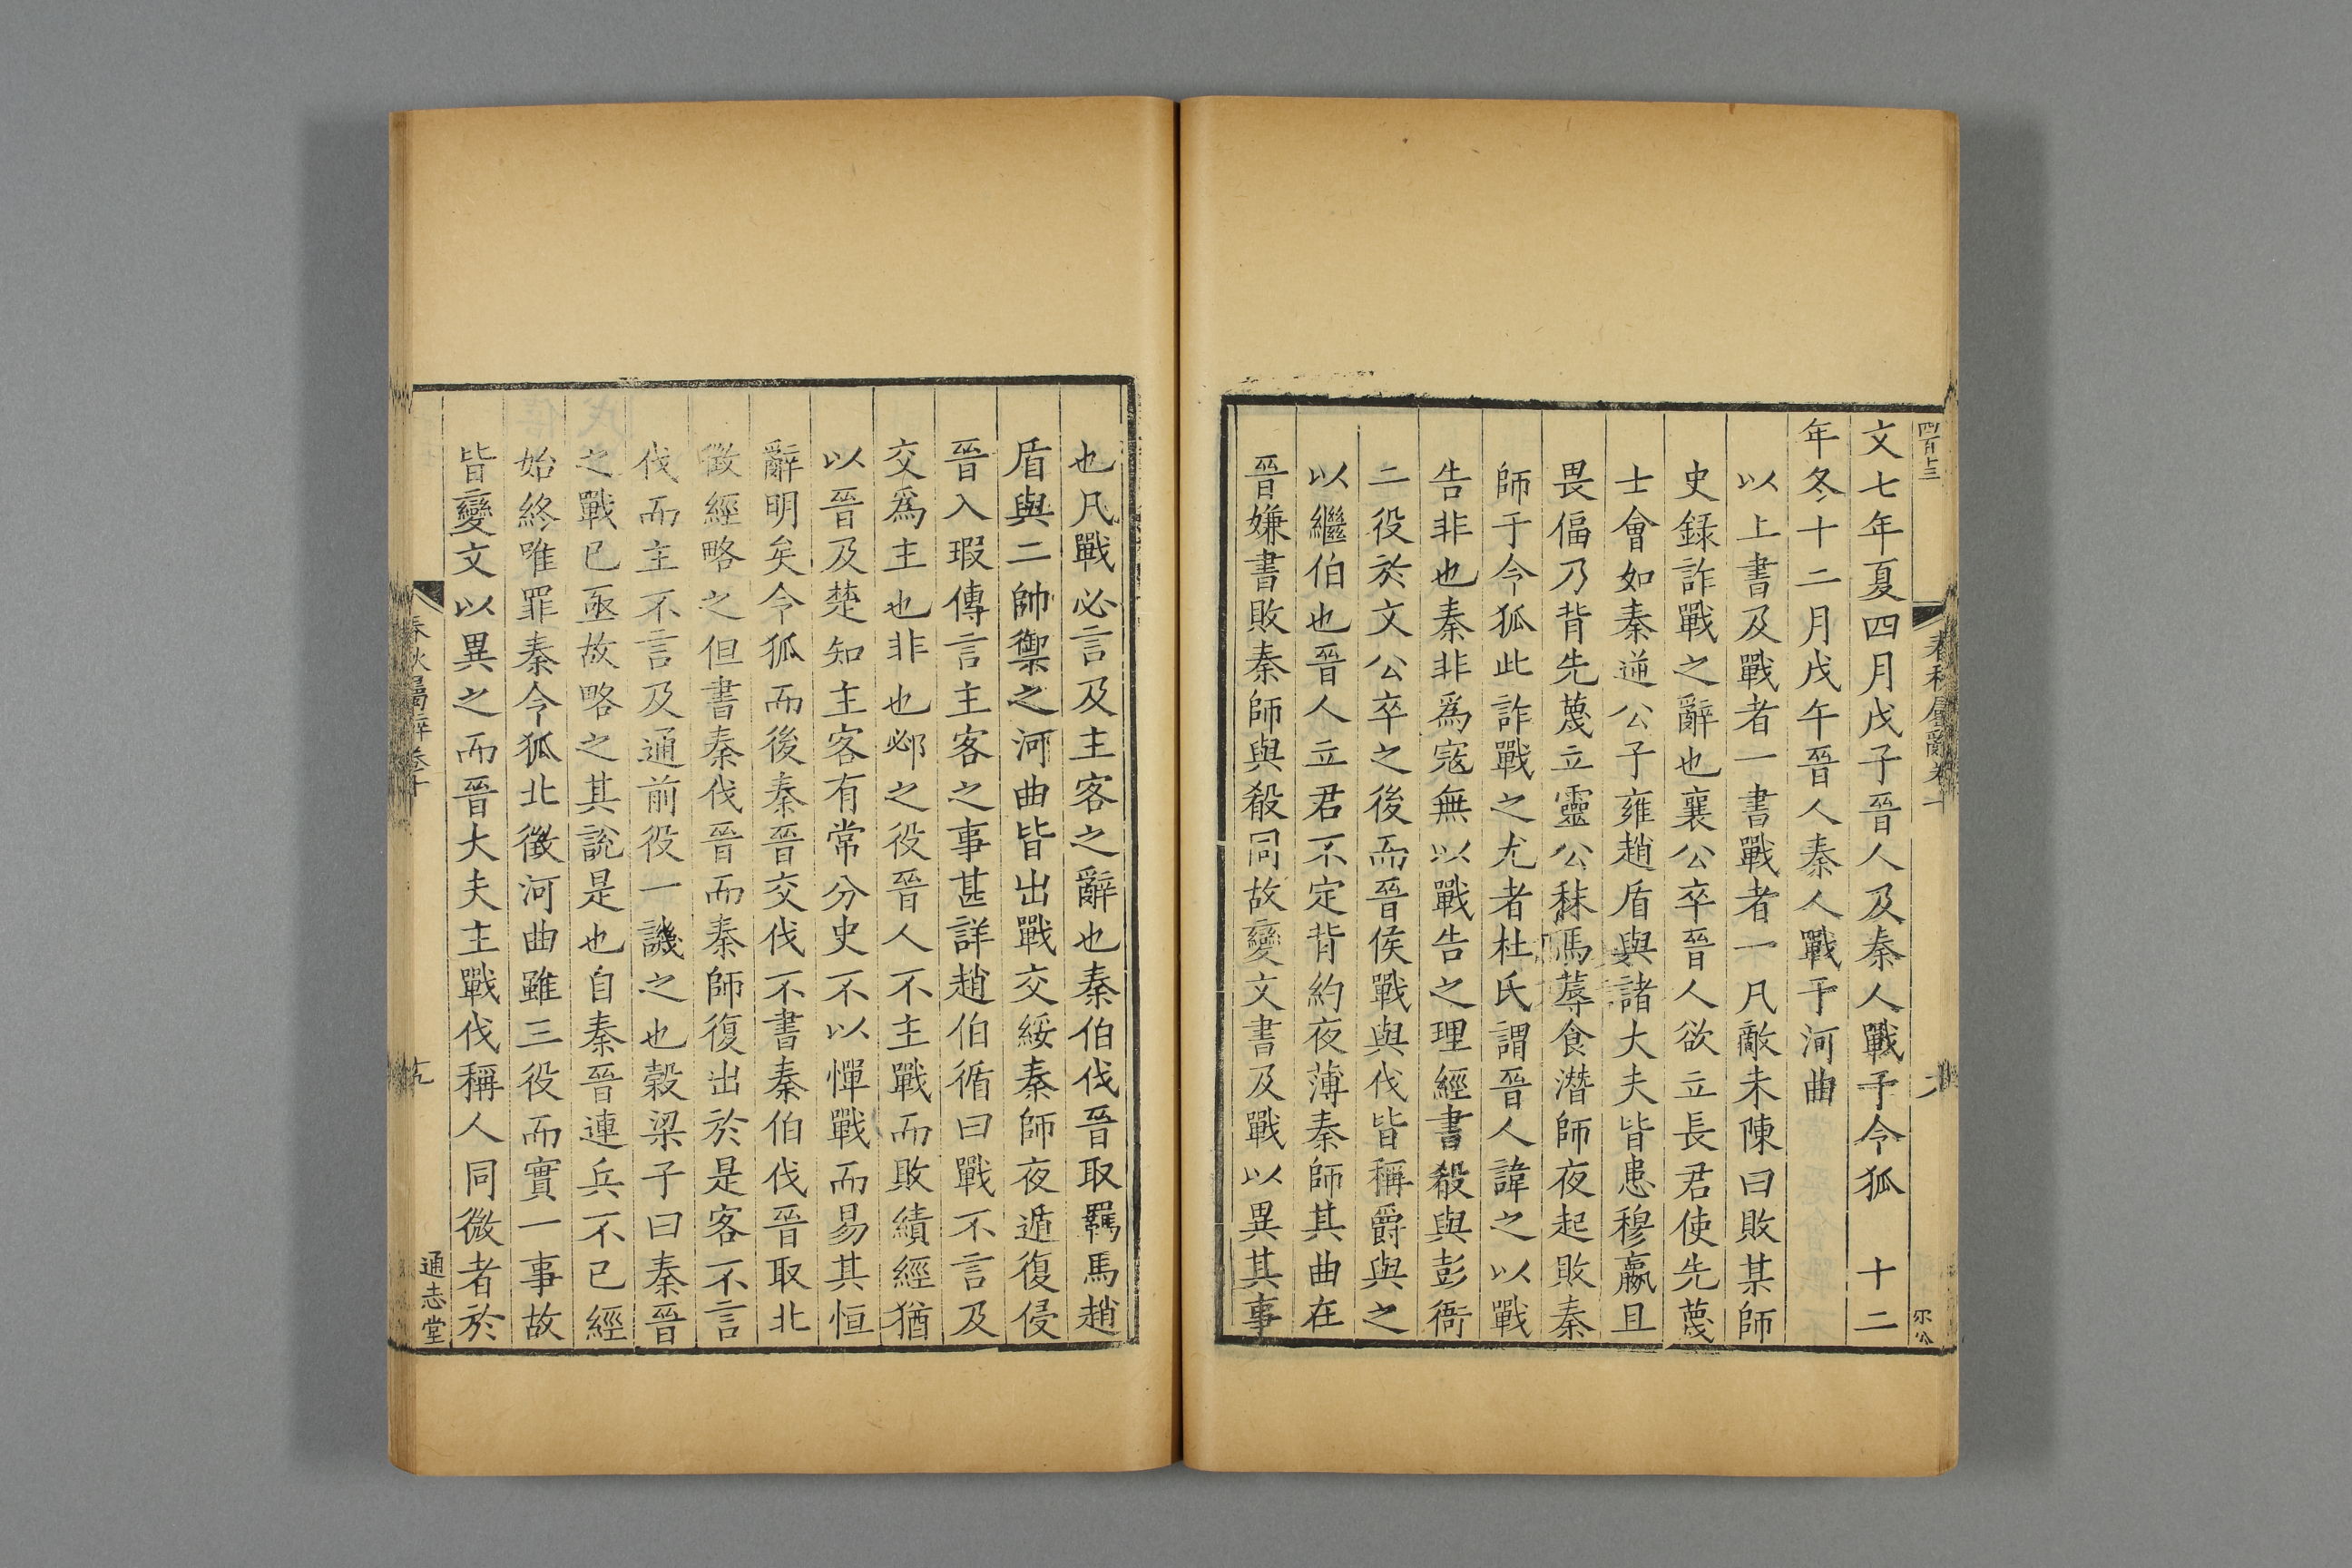 四百七三
春秋屬辭卷十
尔公
文七年夏四月戊子晉人及秦人戰于令狐　十二
年冬十二月戊午晉人秦人戰于河曲
以上書及戰者一書戰者一凡敵未陳曰敗某師
史録詐戰之辭也襄公卒晉人欲立長君使先蔑
士會如秦逆公子雍趙盾與諸大夫皆患穆嬴且
畏偪乃背先蔑立靈公秣馬蓐食潛師夜起敗秦
師于令狐此詐戰之尤者杜氏謂晉人諱之以戰
告非也秦非爲寇無以戰告之理經書殽與彭衙
二役於文公卒之後而晉侯戰與伐皆稱爵與之
以繼伯也晉人立君不定背約夜薄秦師其曲在
晉嫌書敗秦師與殽同故變文書及戰以異其事
也凡戰必言及主客之辭也秦伯伐晉取羈馬趙
盾與二帥禦之河曲皆出戰交綏秦師夜遁復侵
晉入瑕傳言主客之事甚詳趙伯循曰戰不言及
交爲主也非也邲之役晉人不主戰而敗績經猶
以晉及楚知主客有常分史不以憚戰而易其恒
辭明矣令狐而後秦晉交伐不書秦伯伐晉取北
徵經略之但書秦伐晉而秦師復出於是客不言
伐而主不言及通前役一譏之也榖梁子曰秦晉
之戰已亟故略之其說是也自秦晉連兵不已經
始終唯罪秦令狐北徵河曲雖三役而實一事故
皆變文以異之而晉大夫主戰伐稱人同微者於
春秋屬辭卷十
通志堂